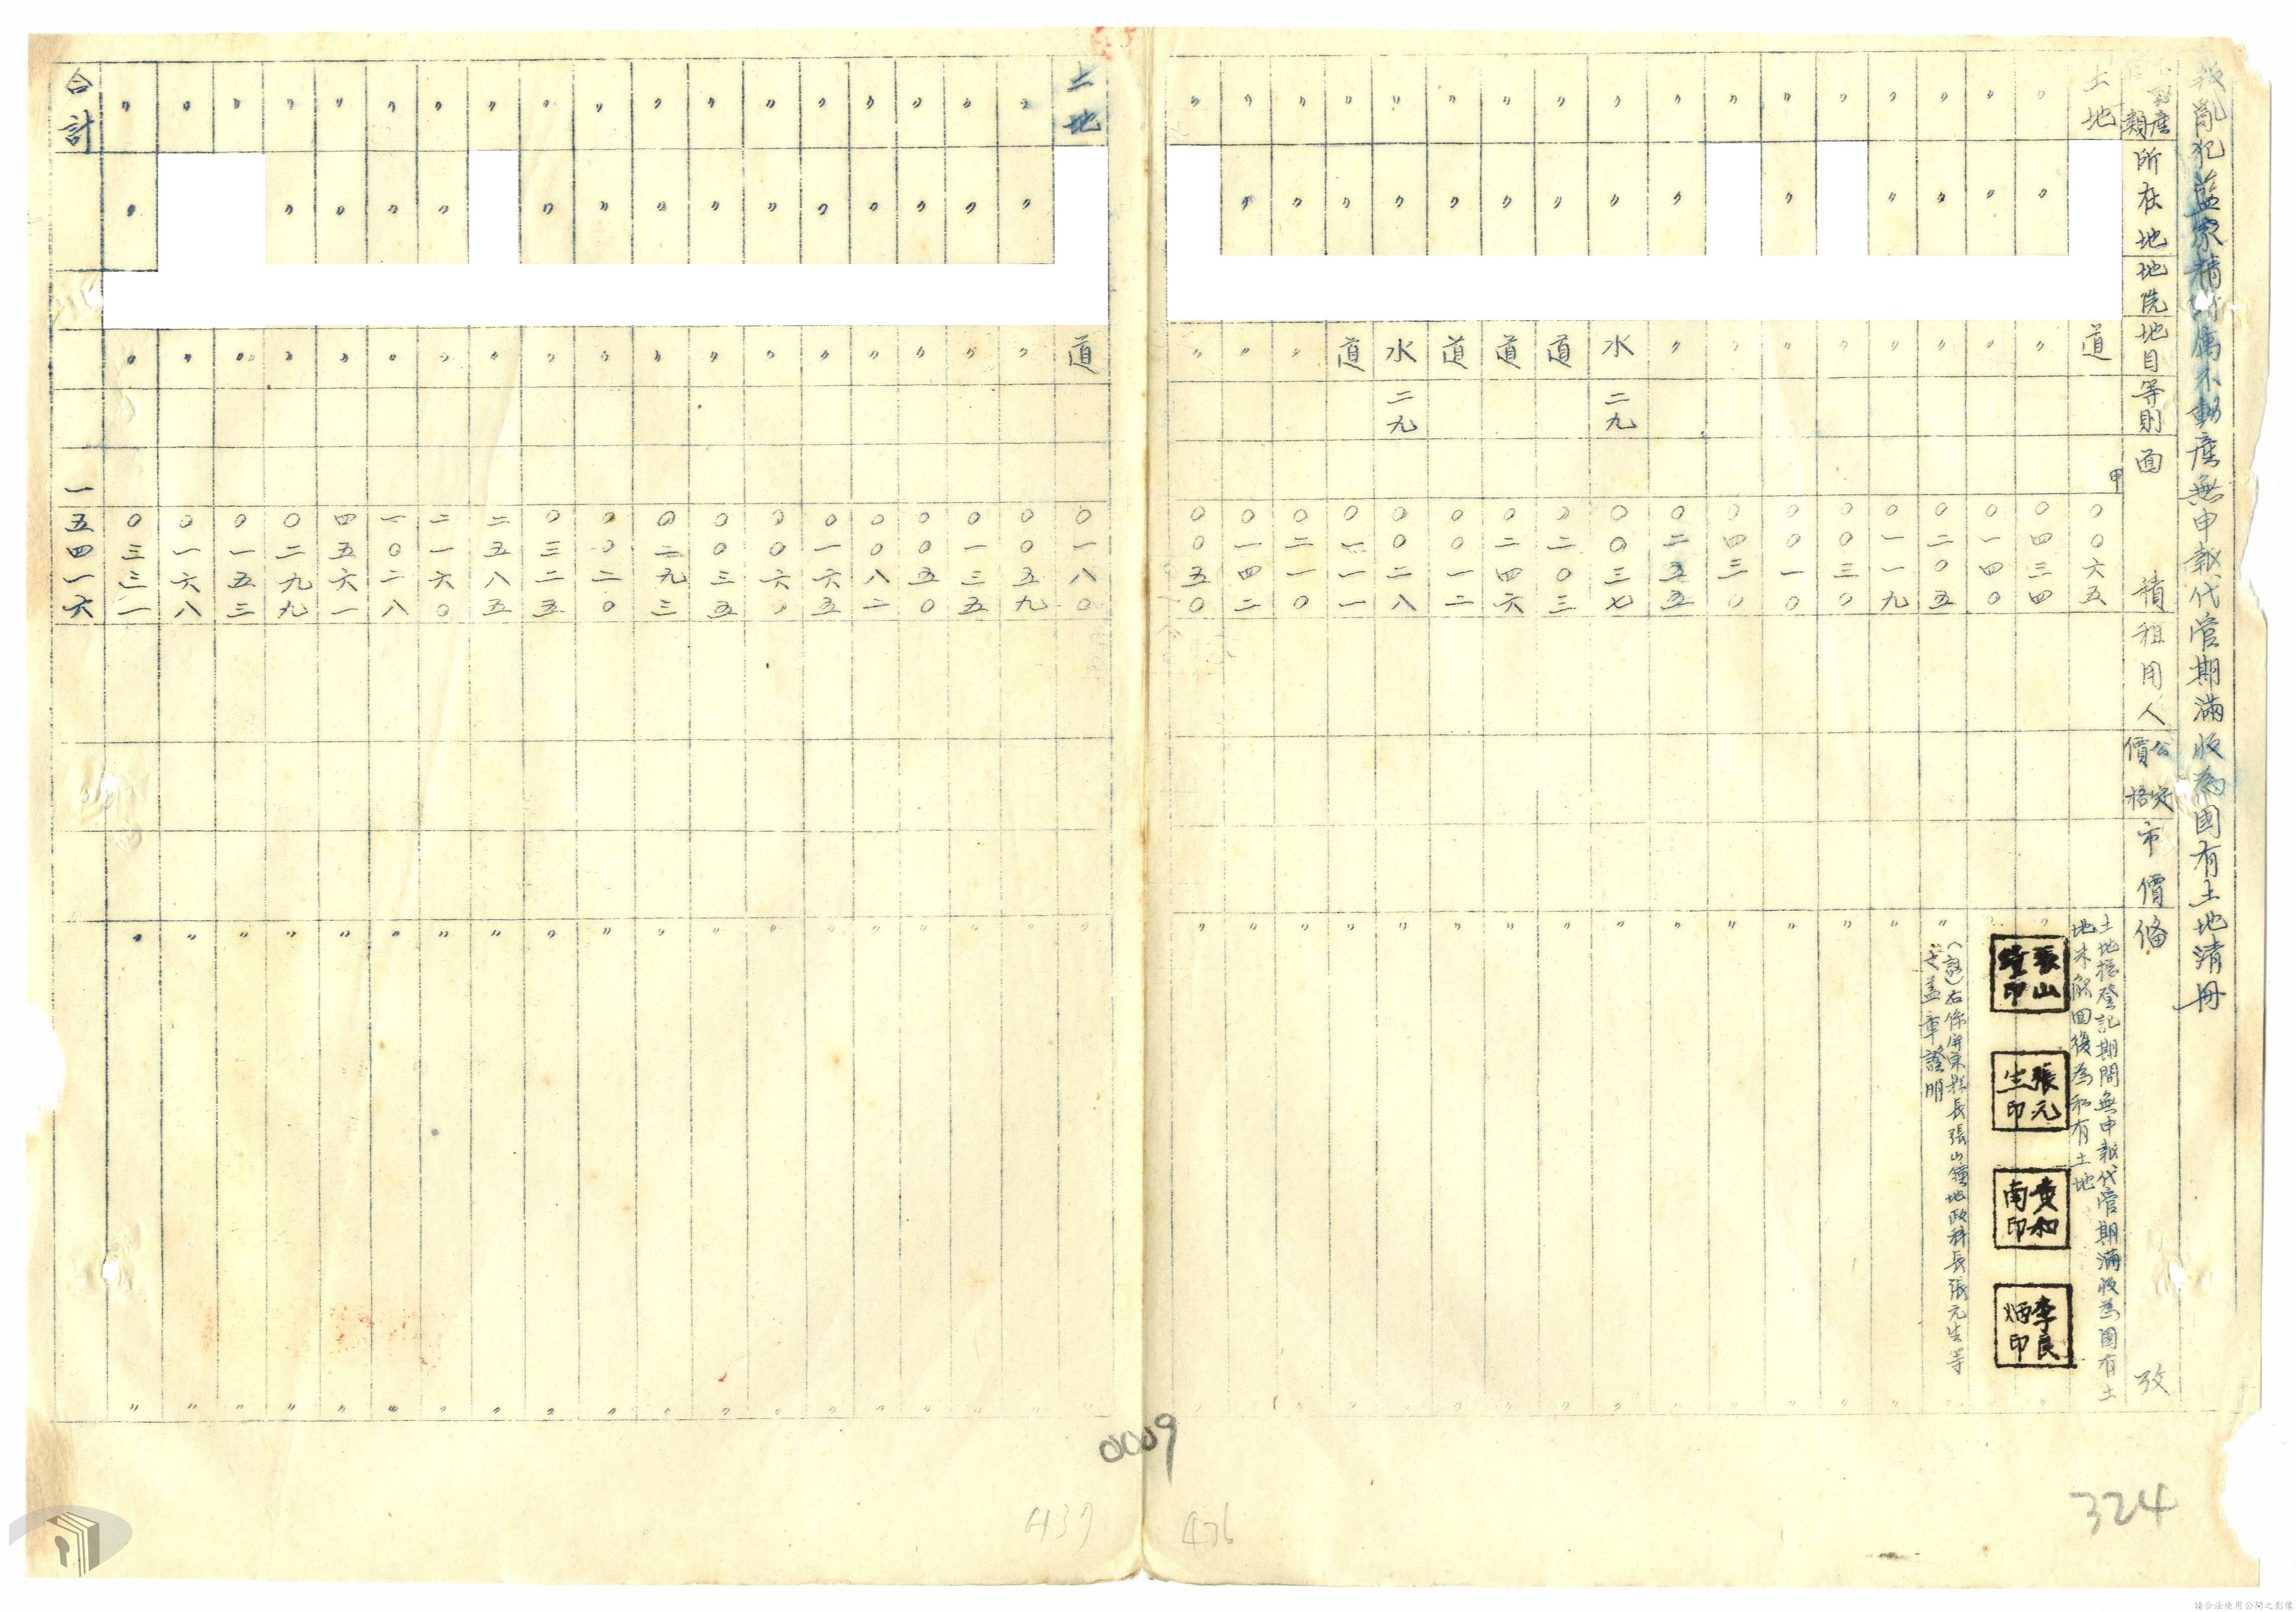 叛亂犯藍家精所屬不動產無申報代管期滿收為國有土地清冊
不動產類
所在地
地號
地目
等則
面積
租用人
公定價格
市價
備攷
土地 道 甲 〇〇六五 土地總登記期間無申報代管期滿收為國有土地未解回後為私有土地
〃 〃 〃 〇四三四 〃
〃 〃 〃 〇一四〇
〃 〃 〃 〇二〇五 〃
〃 〃 〃 〇一一九 〃
〃 〃 〇〇三〇 〃
〃 〃 〃 〇〇一〇 〃
〃 〃 〇四三〇 〃
〃 〃 〃 〇二五五 〃
〃 〃 水 二九 〇〇三七 〃
〃 〃 道 〇二〇三 〃
〃 〃 道 〇二四六 〃
〃 〃 道 〇〇一二 〃
〃 〃 水 二九 〇〇二八 〃
〃 〃 道 〇一一一 〃
〃 〃 〃 〇二一〇 〃
〃 〃 〃 〇一四二 〃
〃 〃 〇〇五〇 〃
張山鐘印
張元生印
黃和南印
李良炳印
(註)右係屏東縣長張山鐘地政科長張元生等
之蓋章證明
土地 道 〇一八〇 〃
〃 〃 〃 〇〇五九 〃
〃 〃 〃 〇一三五 〃
〃 〃 〃 〇〇五〇 〃
〃 〃 〃 〇〇八二 〃
〃 〃 〃 〇一六五 〃
〃 〃 〃 〇〇六〇 〃
〃 〃 〃 〇〇三五 〃
〃 〃 〃 〇二九三 〃
〃 〃 〃 〇〇二〇 〃
〃 〃 〃 〇三二五 〃
〃 〃 二五八五 〃
〃 〃 〃 二一六〇 〃
〃 〃 〃 一〇二八 〃
〃 〃 〃 四五六一 〃
〃 〃 〃 〇二九九 〃
〃 〃 〇一五三 〃
〃 〃 〇一六八 〃
〃 〃 〃 〇三三一 〃
合計 一五四一六
0009
437
436
324
請合法使用公開之影像